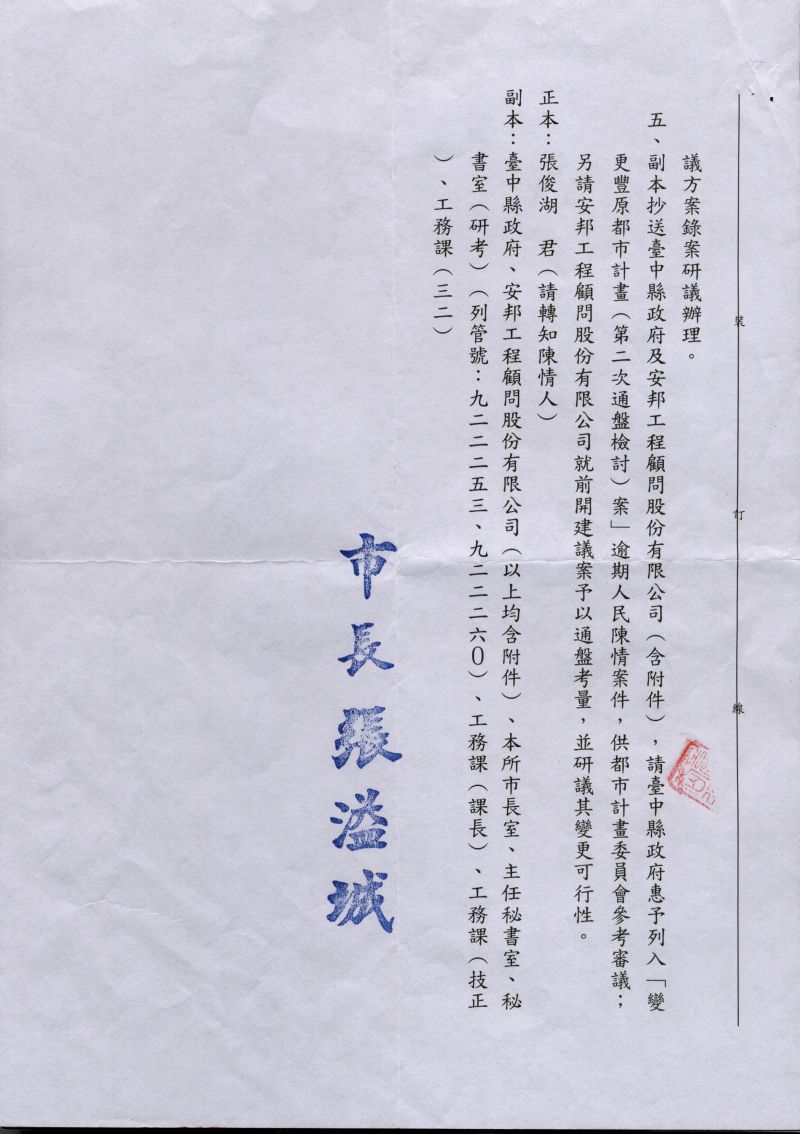 裝 訂 線
議方案錄案研議辦理。
五、副本抄送臺中縣政府及安邦工程顧問股份有限公司（含附件），請臺中縣政府惠予列入「變
更豐原都市計畫（第二次通盤檢討）案」逾期人民陳情案件，供都市計畫委員會參考審議；
另請安邦工程顧問股份有限公司就前開建議案予以通盤考量，並研議其變更可行性。
正本：張俊湖　君（請轉知陳情人）
副本：臺中縣政府、安邦工程顧問股份有限公司（以上均含附件）、本所市長室、主任秘書室、秘
書室（研考）（列管號：九二二二五三、九二二二六０）、工務課（課長）、工務課（技正
）、工務課（三二）
市長張溢城